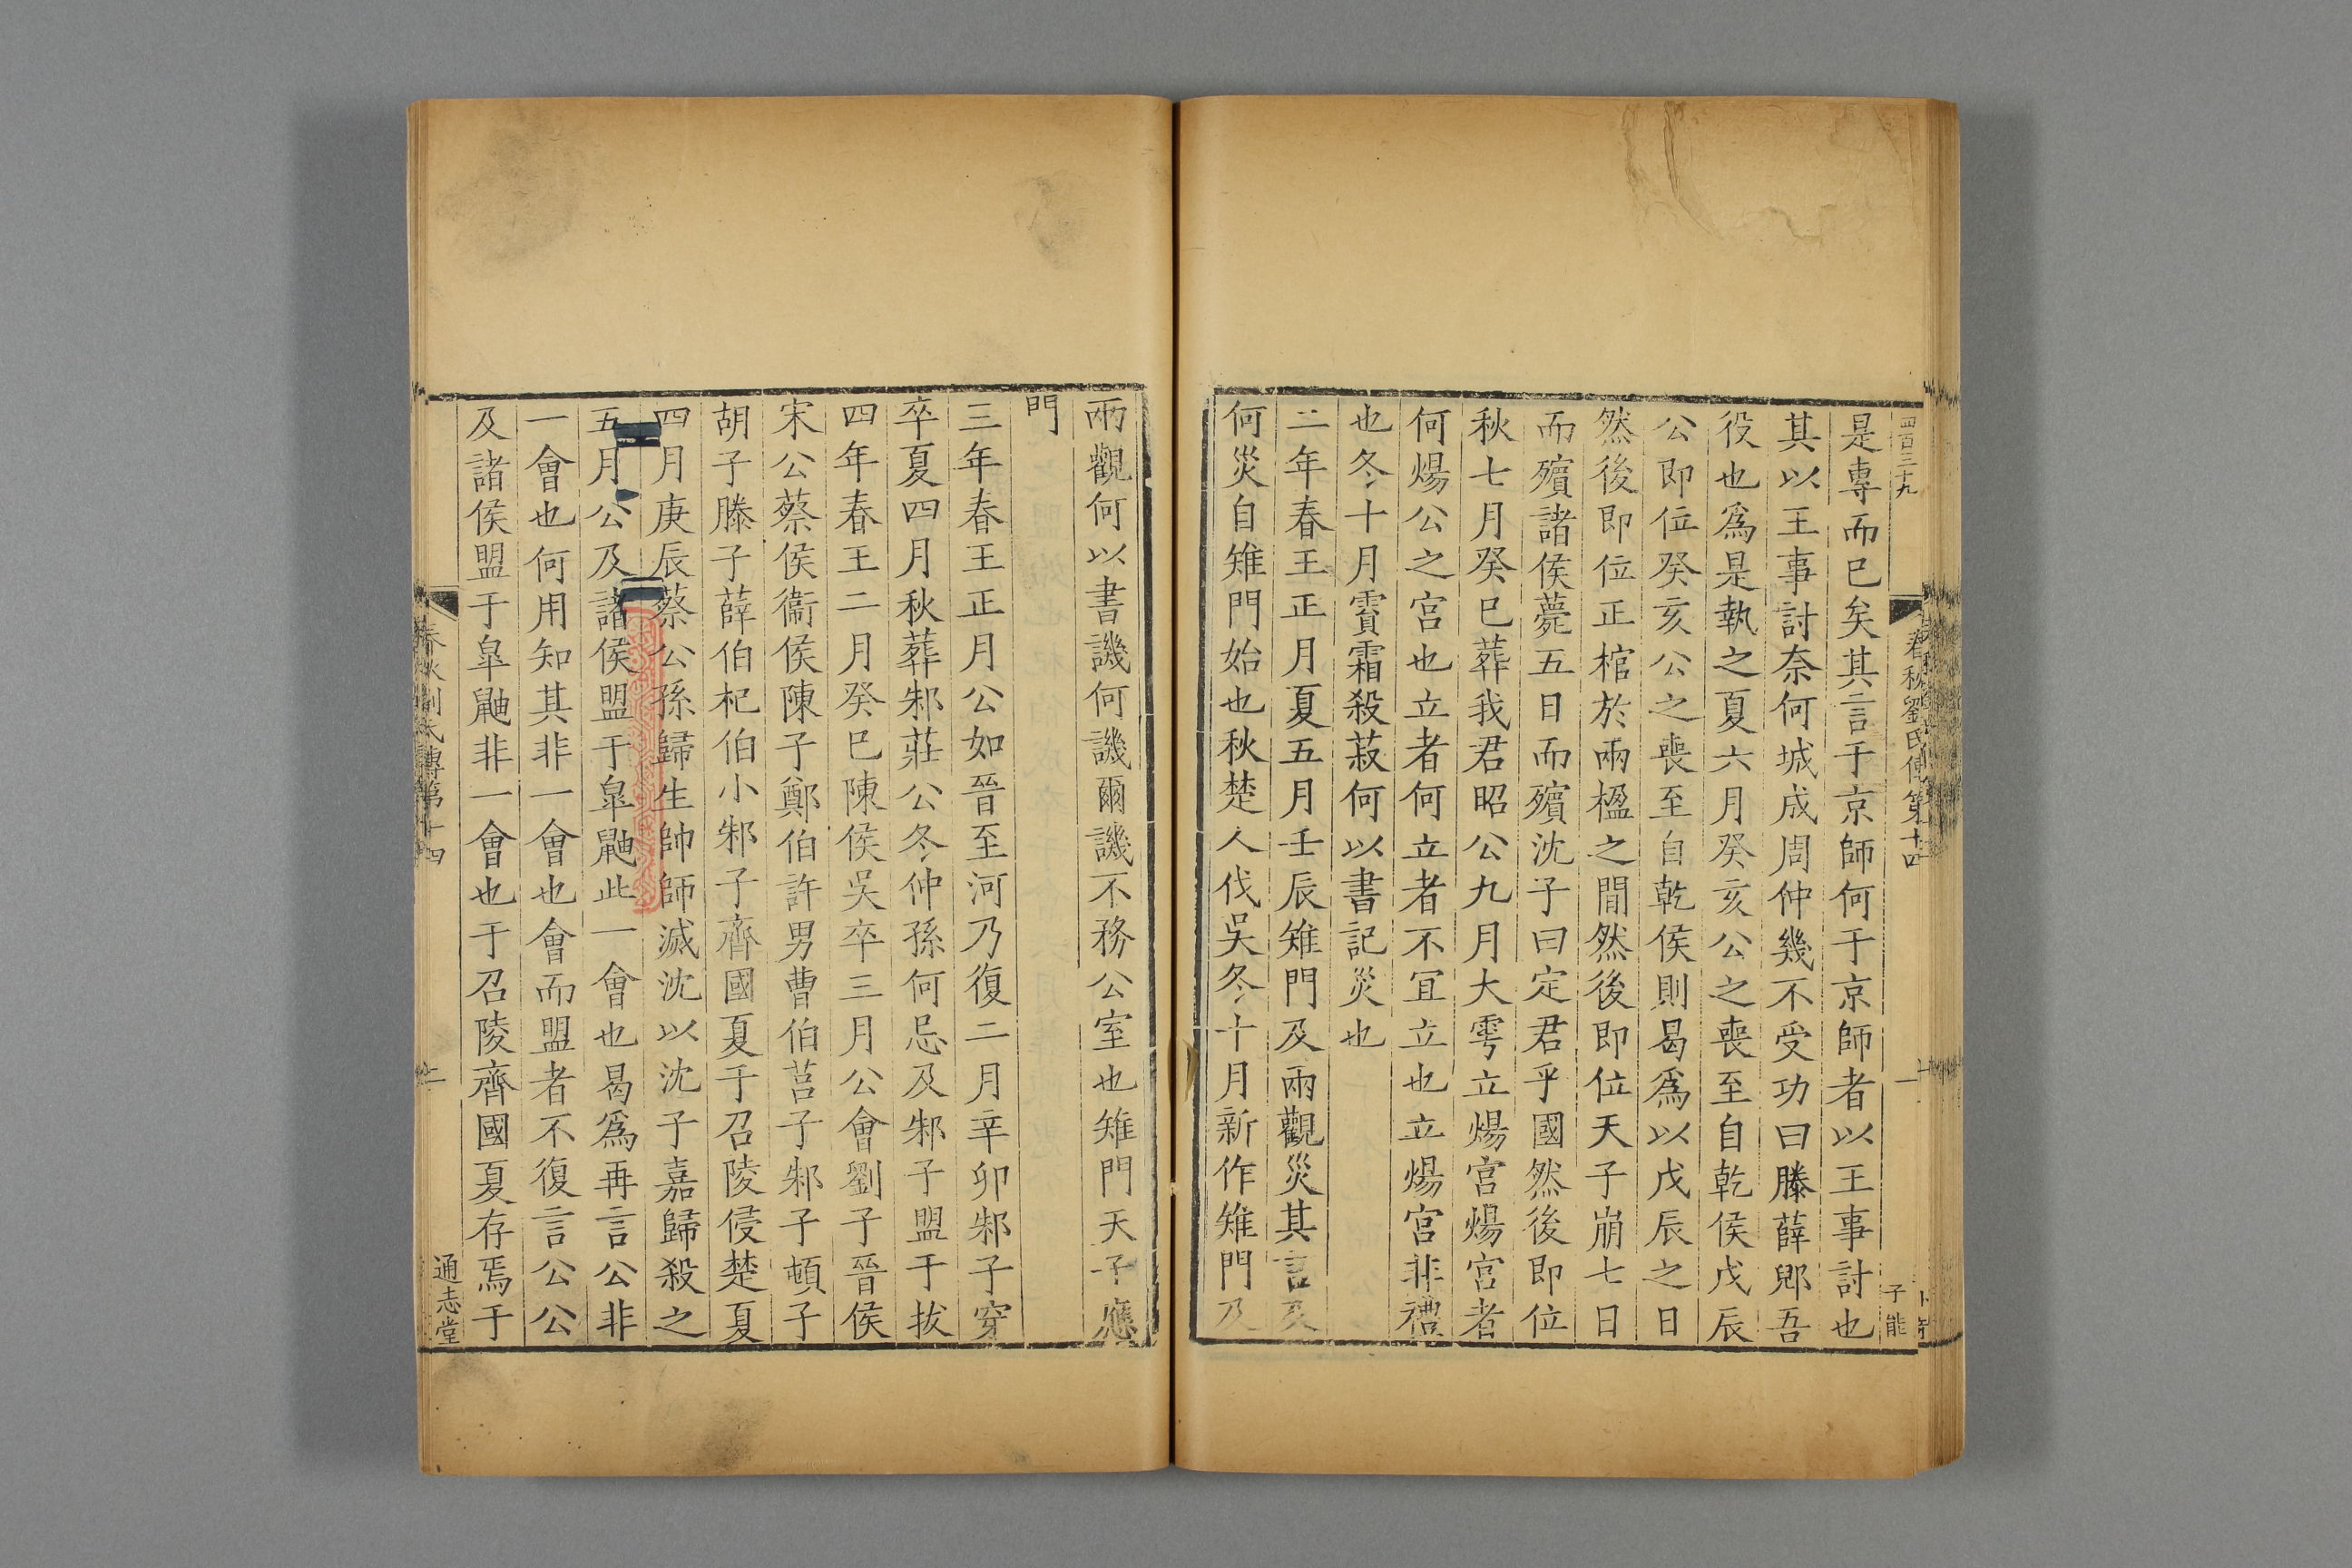 四百三十九
春秋劉氏傳第十四
一
子能
是專而已矣其言于京師何于京師者以王事討也
其以王事討奈何城成周仲幾不受功曰滕薛郳吾
役也爲是執之夏六月癸亥公之喪至自乾侯戊辰
公即位癸亥公之喪至自乾侯則曷爲以戊辰之日
然後即位正棺於兩楹之間然後即位天子崩七日
而殯諸侯薨五日而殯沈子曰定君乎國然後即位
秋七月癸巳葬我君昭公九月大雩立煬宮煬宮者
何煬公之宮也立者何立者不宜立也立煬宮非禮
也冬十月霣霜殺菽何以書記災也
二年春王正月夏五月壬辰雉門及兩觀災其言及
何災自雉門始也秋楚人伐吳冬十月新作雉門及
兩觀何以書譏何譏爾譏不務公室也雉門天子應
門
三年春王正月公如晉至河乃復二月辛卯邾子穿
卒夏四月秋葬邾莊公冬仲孫何忌及邾子盟于拔
四年春王二月癸巳陳侯吳卒三月公會劉子晉侯
宋公蔡侯衞侯陳子鄭伯許男曹伯莒子邾子頓子
胡子滕子薛伯杞伯小邾子齊國夏于召陵侵楚夏
四月庚辰蔡公孫歸生帥師滅沈以沈子嘉歸殺之
五月公及諸侯盟于皐鼬此一會也曷爲再言公非
一會也何用知其非一會也會而盟者不復言公公
及諸侯盟于皐鼬非一會也于召陵齊國夏存焉于
春秋劉氏傳第十四
二
通志堂